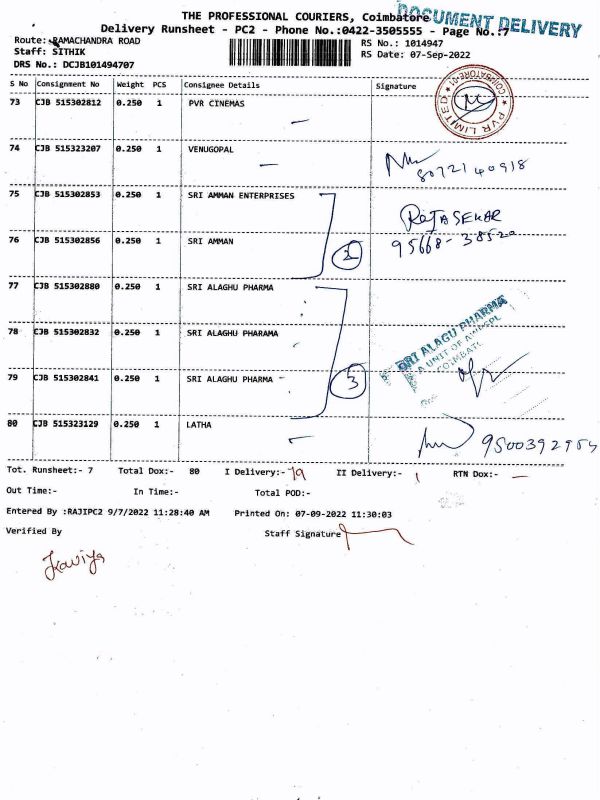 THE PROFESSIONAL COURIERS, Coimbatore
DOCUMENT DELIVERY
Delivery Runsheet - PC2 - Phone No.:0422-3505555 - Page No.:7
Route: RAMACHANDRA ROAD
RS No.: 1014947
Staff: SITHIK
RS Date: 07-Sep-2022
DRS No.: DCJB101494707
S No Consignment No Weight PCS Consignee Details Signature
73 CJB 515302812 0.250 1 PVR CINEMAS
PVR LIMITED
74 CJB 515323207 0.250 1 VENUGOPAL
8072140918
75 CJB 515302853 0.250 1 SRI AMMAN ENTERPRISES
RAJASEKAR
76 CJB 515302856 0.250 1 SRI AMMAN
2
95668-38520
77 CJB 515302880 0.250 1 SRI ALAGHU PHARMA
78 CJB 515302832 0.250 1 SRI ALAGHU PHARAMA
SRI ALAGU PHARMA
A UNIT OF
79 CJB 515302841 0.250 1 SRI ALAGHU PHARMA
3
80 CJB 515323129 0.250 1 LATHA
Tot. Runsheet:- 7 Total Dox:- 80 I Delivery:- 79 II Delivery:- 1 RTN Dox:- —
Out Time:- In Time:- Total POD:-
Entered By :RAJIPC2 9/7/2022 11:28:40 AM Printed On: 07-09-2022 11:30:03
Verified By Staff Signature
Kaviya